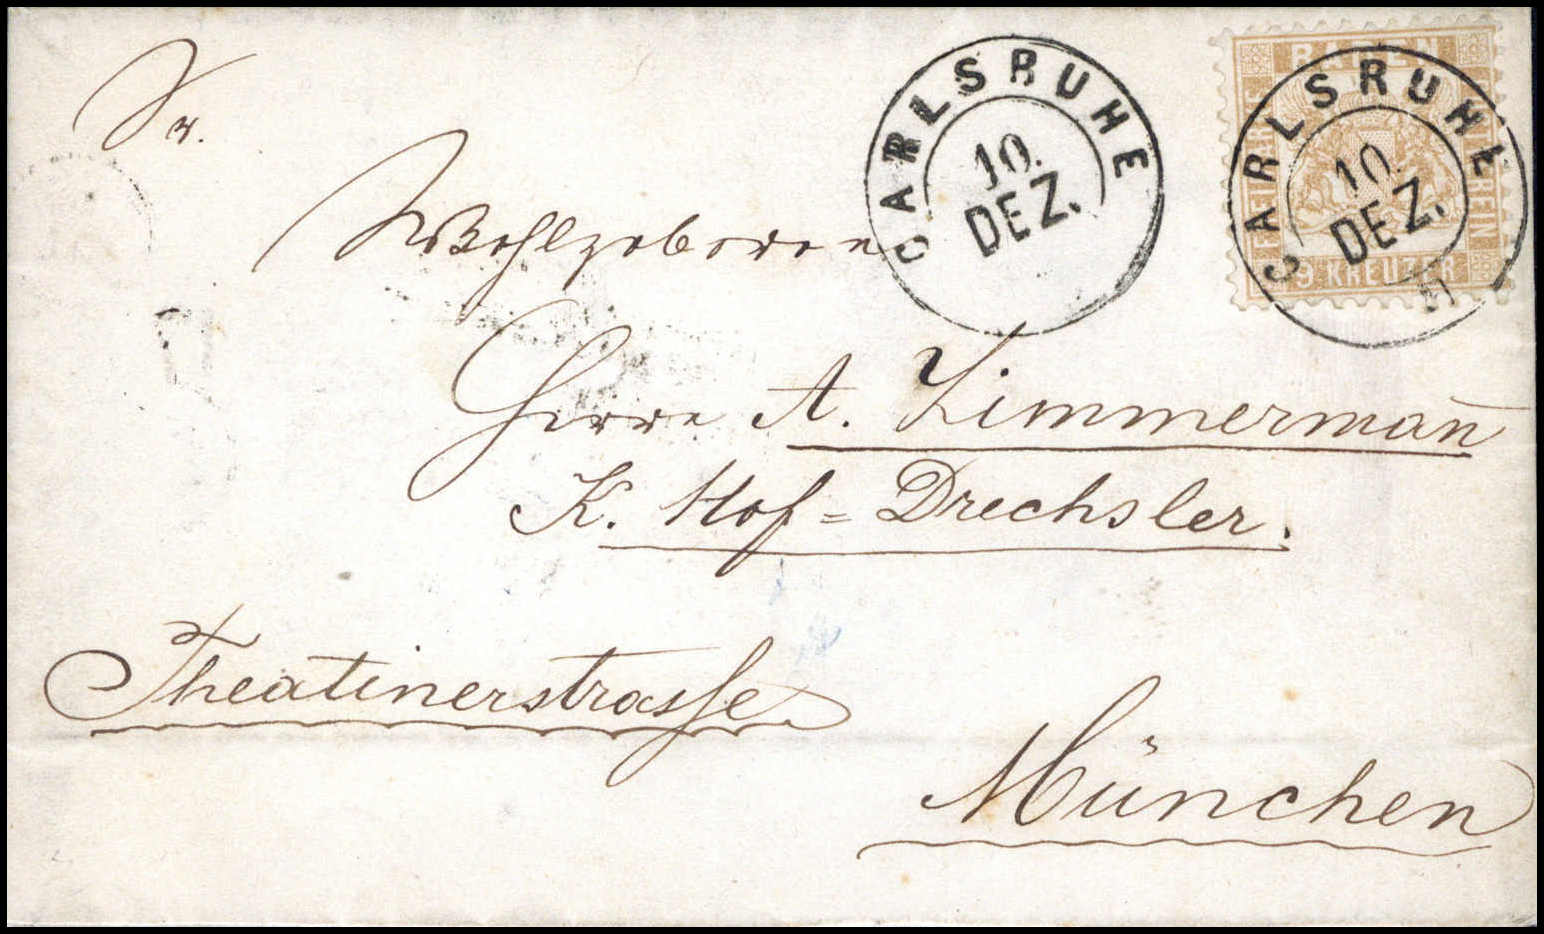 Sr.
Wohlgeboren
Herrn A. Zimmermann̄
K. Hof=Drechsler.
Theatinerstrasse
München
CARLSRUHE
10.
DEZ.
BADEN
9 KREUZER
CARLSRUHE
10.
DEZ.